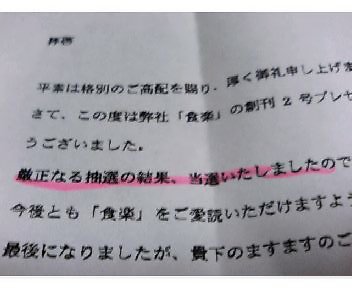 拝啓
平素は格別のご高配を賜り、厚く御礼申し上げま
さて、この度は弊社「食楽」の創刊2号プレゼ
うございました。
厳正なる抽選の結果、当選いたしましたので
今後とも「食楽」をご愛読いただけますよう
最後になりましたが、貴下のますますのご